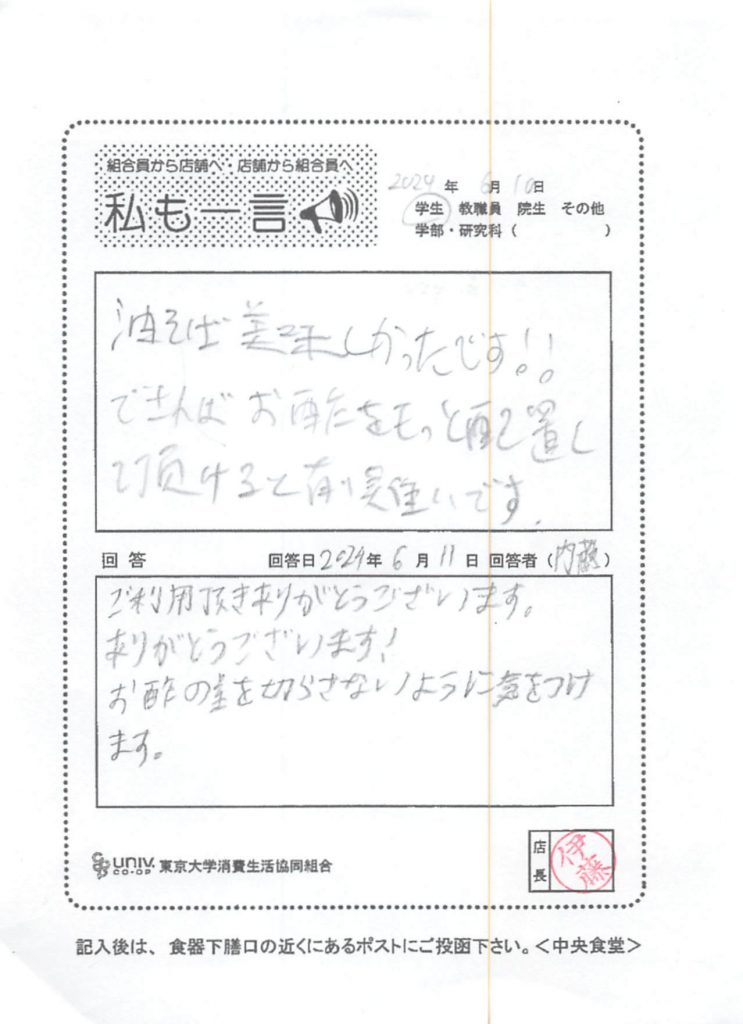 組合員から店舗へ・店舗から組合員へ
私も一言
2024年 6月 10日
学生 教職員 院生 その他
学部・研究科（ ）
油そば美味しかったです!!
できればお酢をもっと配置し
て頂けると有り難いです。
回答 回答日2024年 6月11日 回答者（内藤）
ご利用頂きありがとうございます。
ありがとうございます!
お酢の量を切らさないように気をつけ
ます。
univ. CO-OP 東京大学消費生活協同組合
店長 伊藤
記入後は、食器下膳口の近くにあるポストにご投函下さい。＜中央食堂＞